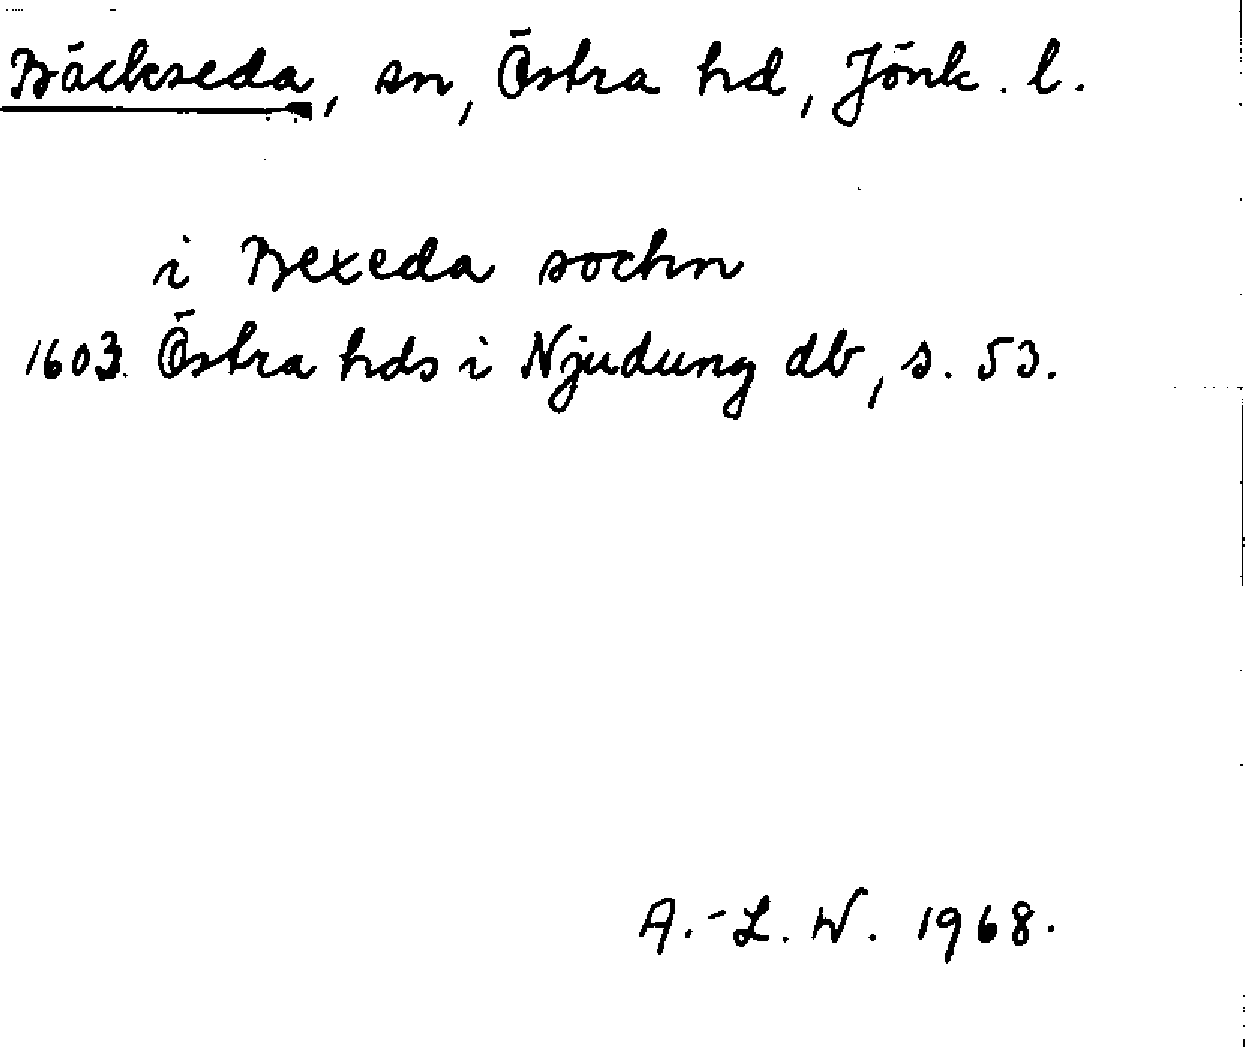 Bäckseda, sn, Östra hd, Jönk. l.
i Bexeda sochn
1603. Östra hds i Njudung db, s. 53.
A.-L. W. 1968.